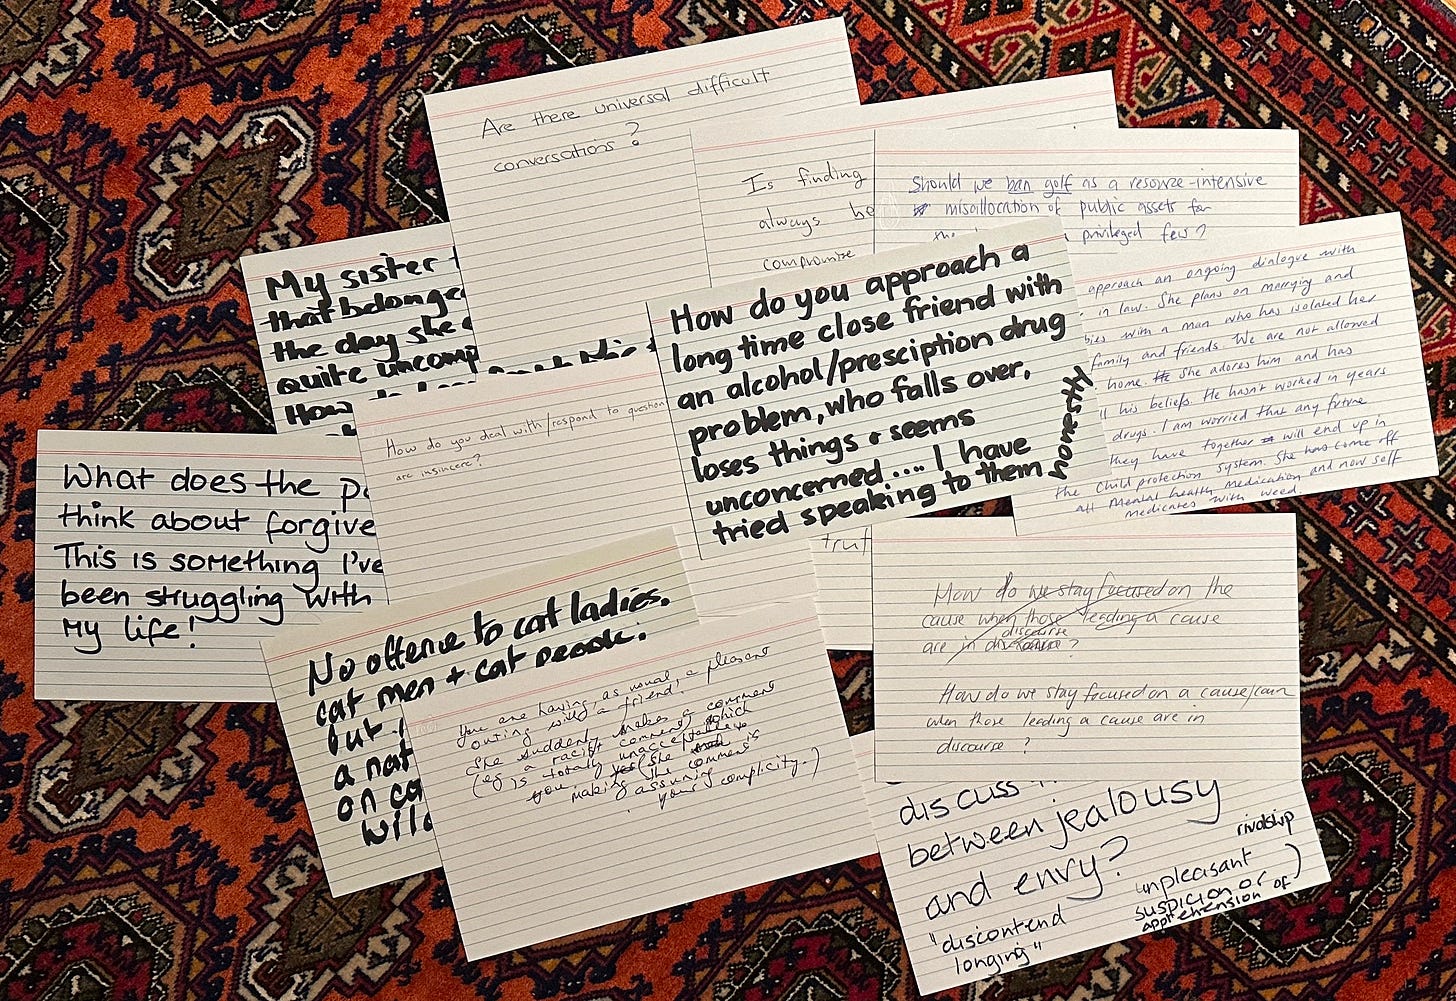 Are there universal difficult
conversations?
Is finding
always
compromise
Should we ban golf as a resource-intensive
misallocation of public assets for
privileged few?
My sister
that belonge
the day she
quite uncomp
How
How do you approach a
long time close friend with
an alcohol/presciption drug
problem, who falls over,
loses things & seems
unconcerned.... I have
tried speaking to them
honestly
approach an ongoing dialogue with
in law. She plans on marrying and
bies with a man who has isolated her
family and friends. We are not allowed
home. She adores him and has
his beliefs. He hasn't worked in years
drugs. I am worried that any future
they have together will end up in
the child protection system. She has come off
all mental health medication and now self
medicates with weed.
How do you deal with/respond to question
are insincere?
What does the pa
think about forgive
This is something I've
been struggling with
my life!
truf
No offence to cat ladies,
cat men + cat people.
but
a nat
on ca
wild
You are having, as usual, a pleasant
outing with a friend.
She suddenly makes a comment
(eg a racist comment) which
is totally unacceptable to
you (she
making the comment is
assuming
your complicity.)
How do we stay focused on the
cause when those leading a cause
are in discourse?
How do we stay focused on a cause/can
when those leading a cause are in
discourse?
discuss
between jealousy
and envy?
"discontend
longing"
rivalship
unpleasant
suspicion or
apprehension of)